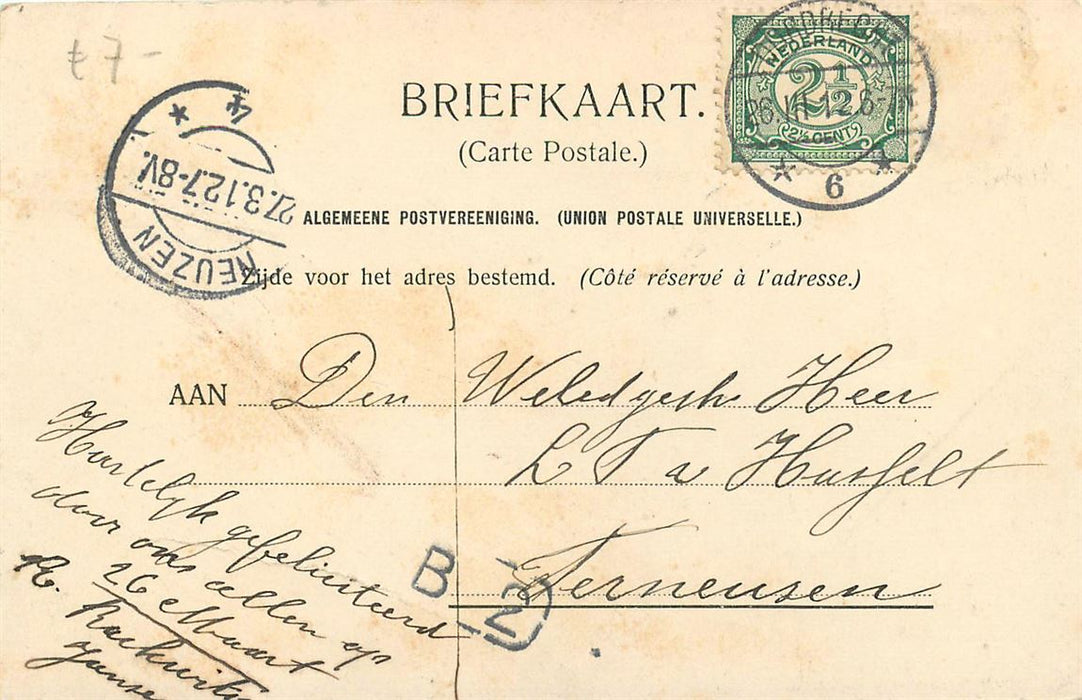 £ 7 -
BRIEFKAART.
(Carte Postale.)
NEDERLAND
2½
2½ CENT
DORDRECHT
6
4
27.3.12.7-8V.
NEUZEN
ALGEMEENE POSTVEREENIGING. (UNION POSTALE UNIVERSELLE.)
Zijde voor het adres bestemd. (Côté réservé à l'adresse.)
AAN Den Weledgesh Heer
L T a Hasselt
Terneusen
B 2
Hartelijk gefeliciteerd
door ons allen op
26 Maart
R.